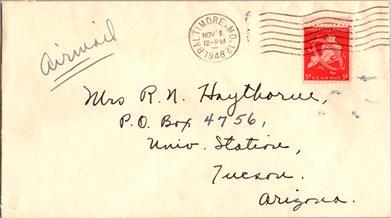 Airmail
BALTIMORE, MD. 12
NOV 1
12-PM
1948
5¢ U.S. AIR MAIL 5¢
Mrs R. N. Haythorne,
P.O. Box 4756,
Univ. Station,
Tucson.
Arizona.